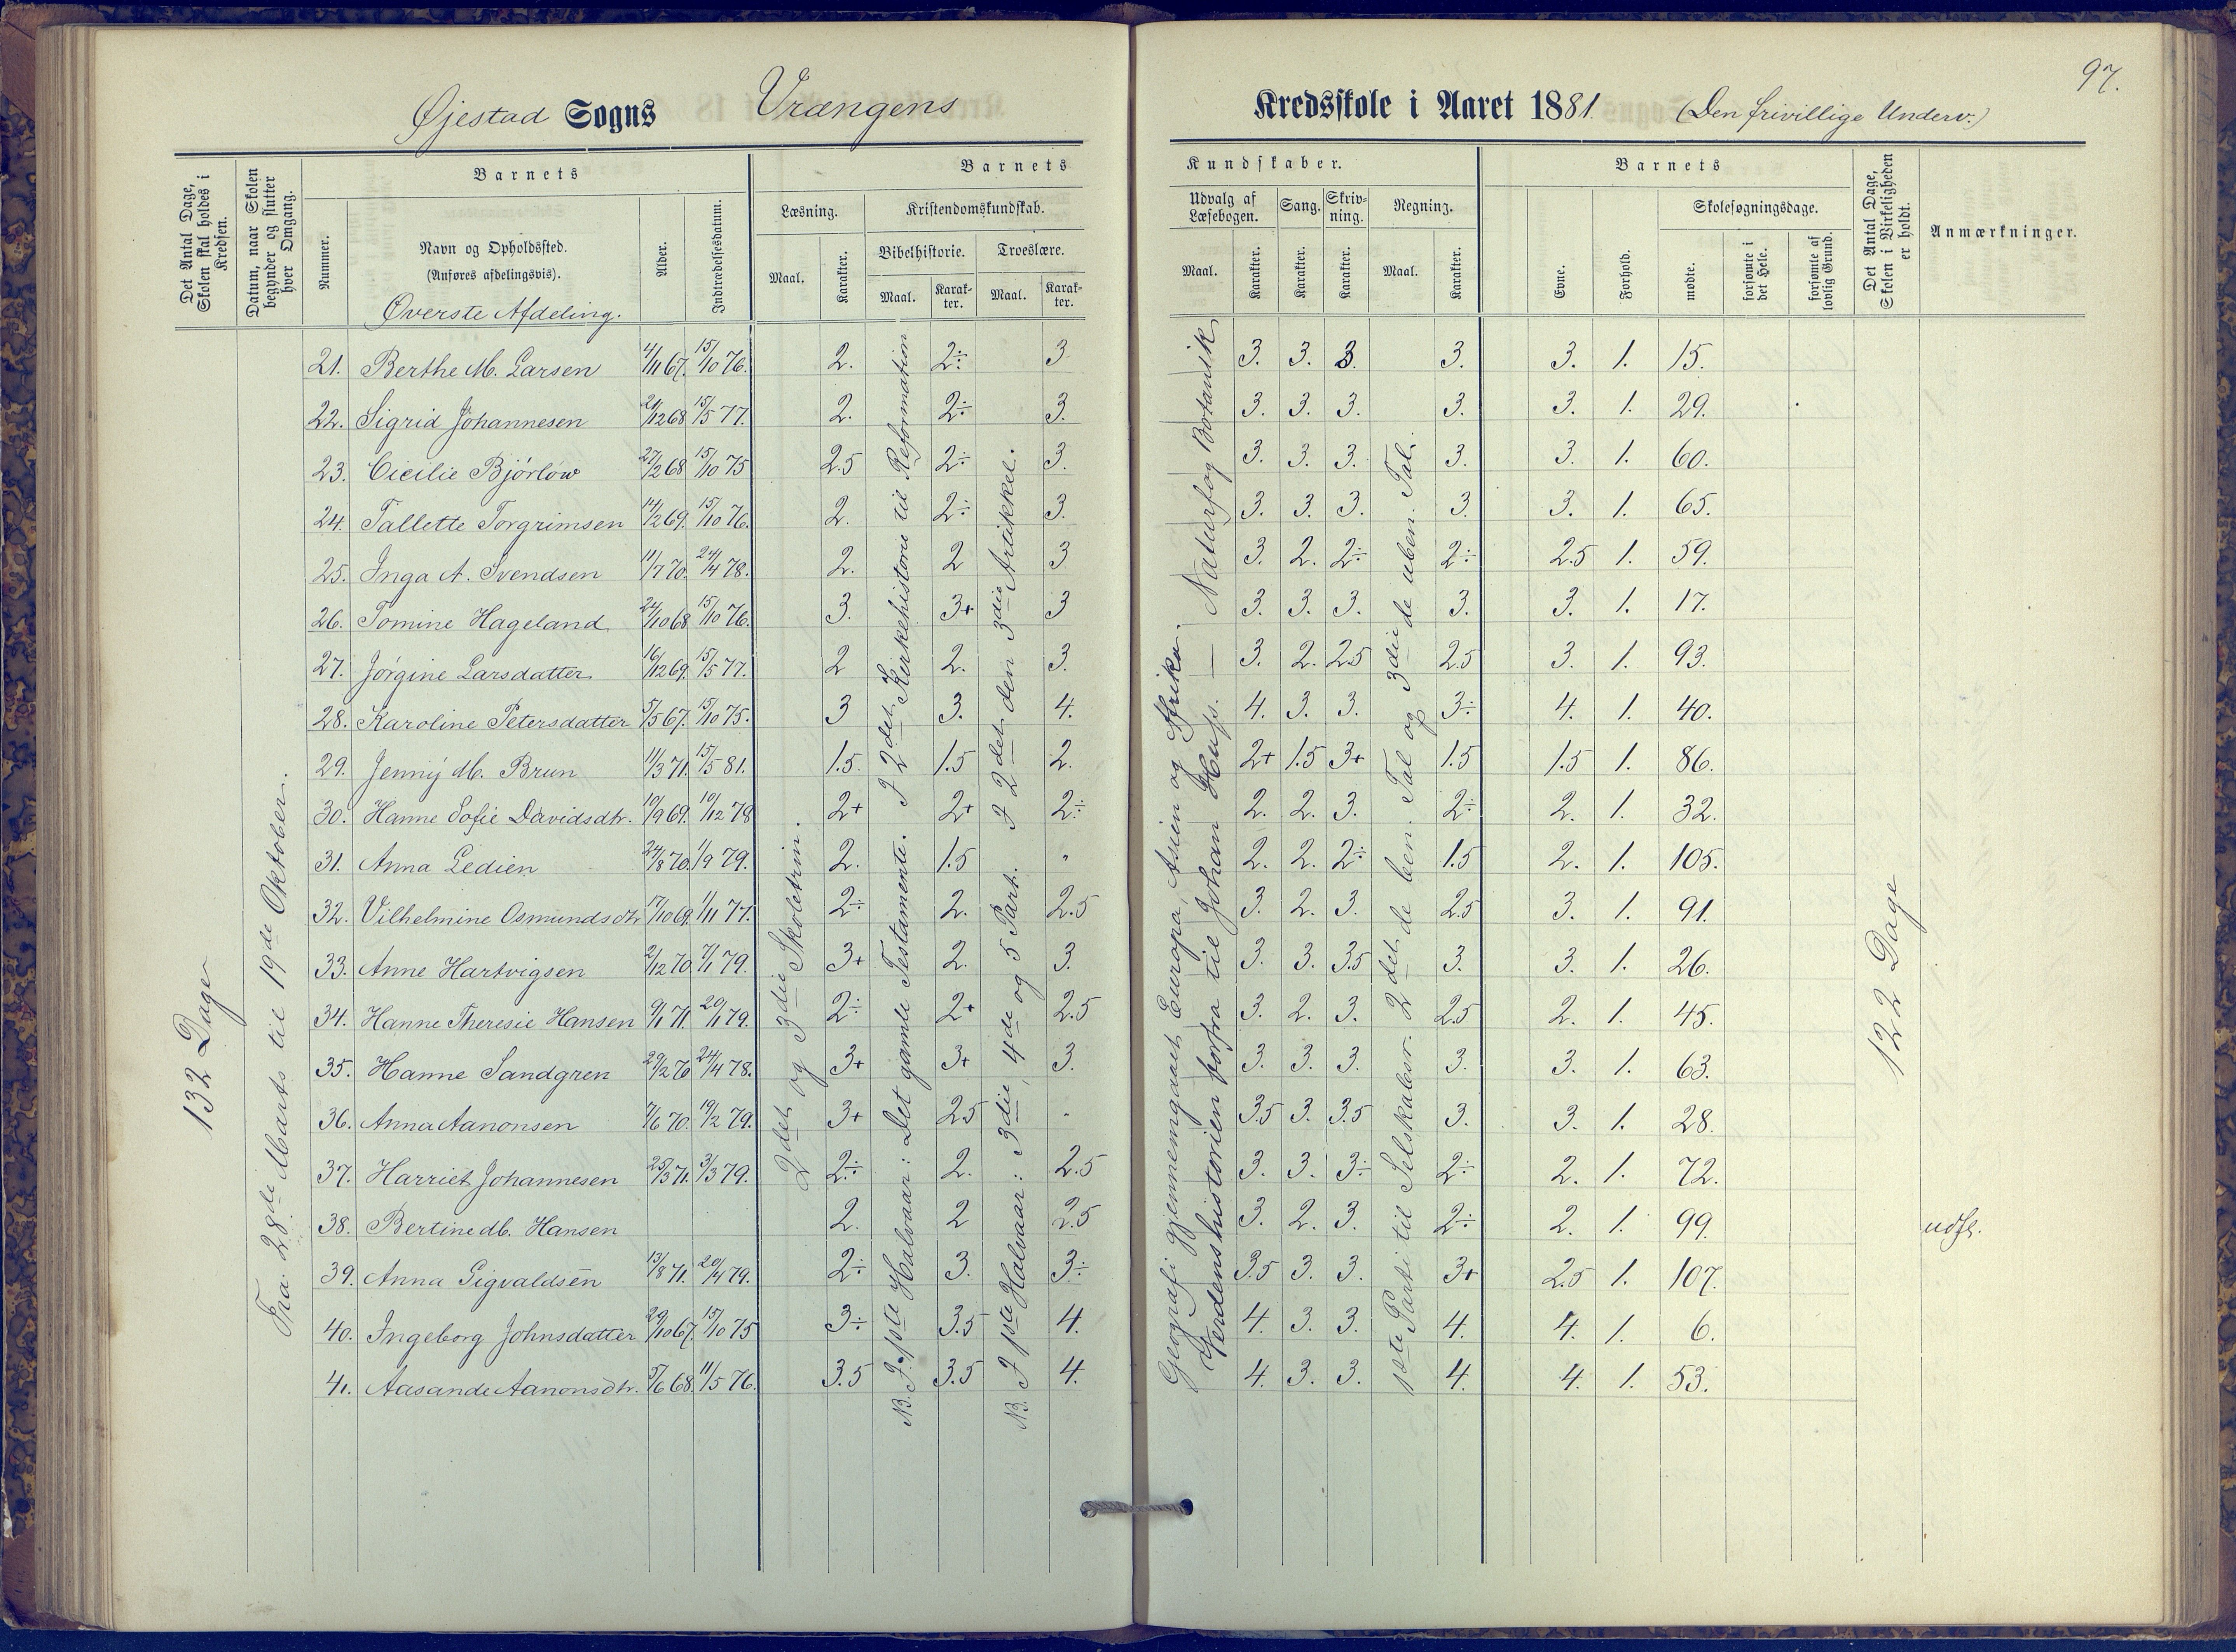 97.
Øjestad Sogns Vrængens Kredsskole i Aaret 1881. (Den frivillige Underv.)
Det Antal Dage, Skolen skal holdes i Kredsen.
Datum, naar Skolen begynder og slutter hver Omgang.
Barnets
Nummer.
Navn og Opholdssted.
(Anføres afdelingsvis).
Øverste Afdeling.
Alder.
Indtrædelsesdatum.
Barnets Kundskaber.
Læsning. Kristendomskundskab.
Maal. Karakter. Bibelhistorie. Troeslære.
Maal. Karakter. Maal. Karakter.
Udvalg af Læsebogen. Sang. Skrivning. Regning.
Maal. Karakter. Karakter. Karakter. Maal. Karakter.
Barnets
Evne. Forhold. Skolesøgningsdage.
mødte. forsømte i det Hele. forsømte af lovlig Grund.
Det Antal Dage, Skolen i Virkeligheden er holdt.
Anmærkninger.
132 Dage
Fra 28de Marts til 19de Oktober.
2det og 3die Skoletrin.
N.B. I 1ste Halvaar: Det gamle Testamente. I 2det Kirkehistorie til Reformation
N.B. I 1ste Halvaar: 3die, 4de og 5 Part. I 2det den 3die Artikkel.
Geografi gjennemgaaet Europa, Asien og Afrika.
Verdenshistorien forfra til Johan Huss. — Naturfag Botanik
1ste Parti til Selskabsr. 2det de ben. Tal og 3die de uben. Tal.
122 Dage
21. Berthe M. Larsen 4/11 67. 15/10 76. 2. 2÷ 3 3. 3. 3. 3. 3. 1. 15.
22. Sigrid Johannesen 21/12 68 15/5 77. 2. 2÷ 3. 3. 3. 3. 3. 3. 1. 29.
23. Cicilie Bjørlow 27/2 68 15/10 75 2.5 2÷ 3. 3. 3. 3. 3. 3. 1. 60.
24. Tallette Torgrimsen 14/2 69. 15/10 76. 2. 2÷ 3. 3. 3. 3. 3. 3. 1. 65.
25. Inga A. Svendsen 11/7 70. 24/4 78. 2. 2 3 3. 2. 2÷ 2÷ 2.5 1. 59.
26. Tomine Hageland 24/10 68 15/10 76. 3. 3+ 3 3. 3. 3. 3. 3. 1. 17.
27. Jørgine Larsdatter 16/12 69. 15/5 77. 2 2. 3. 3. 2. 2.5 2.5 3. 1. 93.
28. Karoline Petersdatter 5/5 67. 15/10 75. 3 3. 4. 4. 3. 3. 3÷ 4. 1. 40.
29. Jenny M. Brun 11/3 71. 15/5 81. 1.5. 1.5 2. 2+ 1.5 3+ 1.5 1.5 1. 86.
30. Hanne Sofie Davidsdtr. 10/9 69. 10/12 78 2+ 2+ 2÷ 2. 2. 3. 2÷ 2. 1. 32.
31. Anna Ledien 24/8 70. 1/9 79. 2. 1.5 " 2. 2. 2÷ 1.5 2. 1. 105.
32. Vilhelmine Osmundsdtr 17/10 69. 1/11 77. 2÷ 2. 2.5 3. 2. 3. 2.5 3. 1. 91.
33. Anne Hartvigsen 2/12 70. 7/1 79. 3+ 2. 3. 3. 3. 3.5 3. 3. 1. 26.
34. Hanne Theresie Hansen 9/1 71. 20/1 79. 2÷ 2+ 2.5 3. 2. 3. 2.5 2. 1. 45.
35. Hanne Sandgren 29/2 70 24/4 78. 3+ 3+ 3. 3. 3. 3. 3. 3. 1. 63.
36. Anna Aanonsen 7/6 70. 19/2 79. 3+ 2.5 " 3.5 3. 3.5 3. 3. 1. 28.
37. Harriet Johannesen 25/3 71. 3/3 79. 2÷ 2. 2.5 3. 3. 3÷ 2÷ 2. 1. 72.
38. Bertine M. Hansen 2. 2 2.5 3. 2. 3. 2÷ 2. 1. 99. udfl.
39. Anna Sigvaldsen 13/8 71. 20/4 79. 2÷ 3. 3÷ 3.5 3. 3. 3+ 2.5 1. 107.
40. Ingeborg Johnsdatter 29/10 67. 15/10 75 3÷ 3.5 4. 4. 3. 3. 4. 4. 1. 6.
41. Aasande Aanonsdtr. 5/6 68. 11/5 76. 3.5 3.5 4. 4. 3. 3. 4. 4. 1. 53.